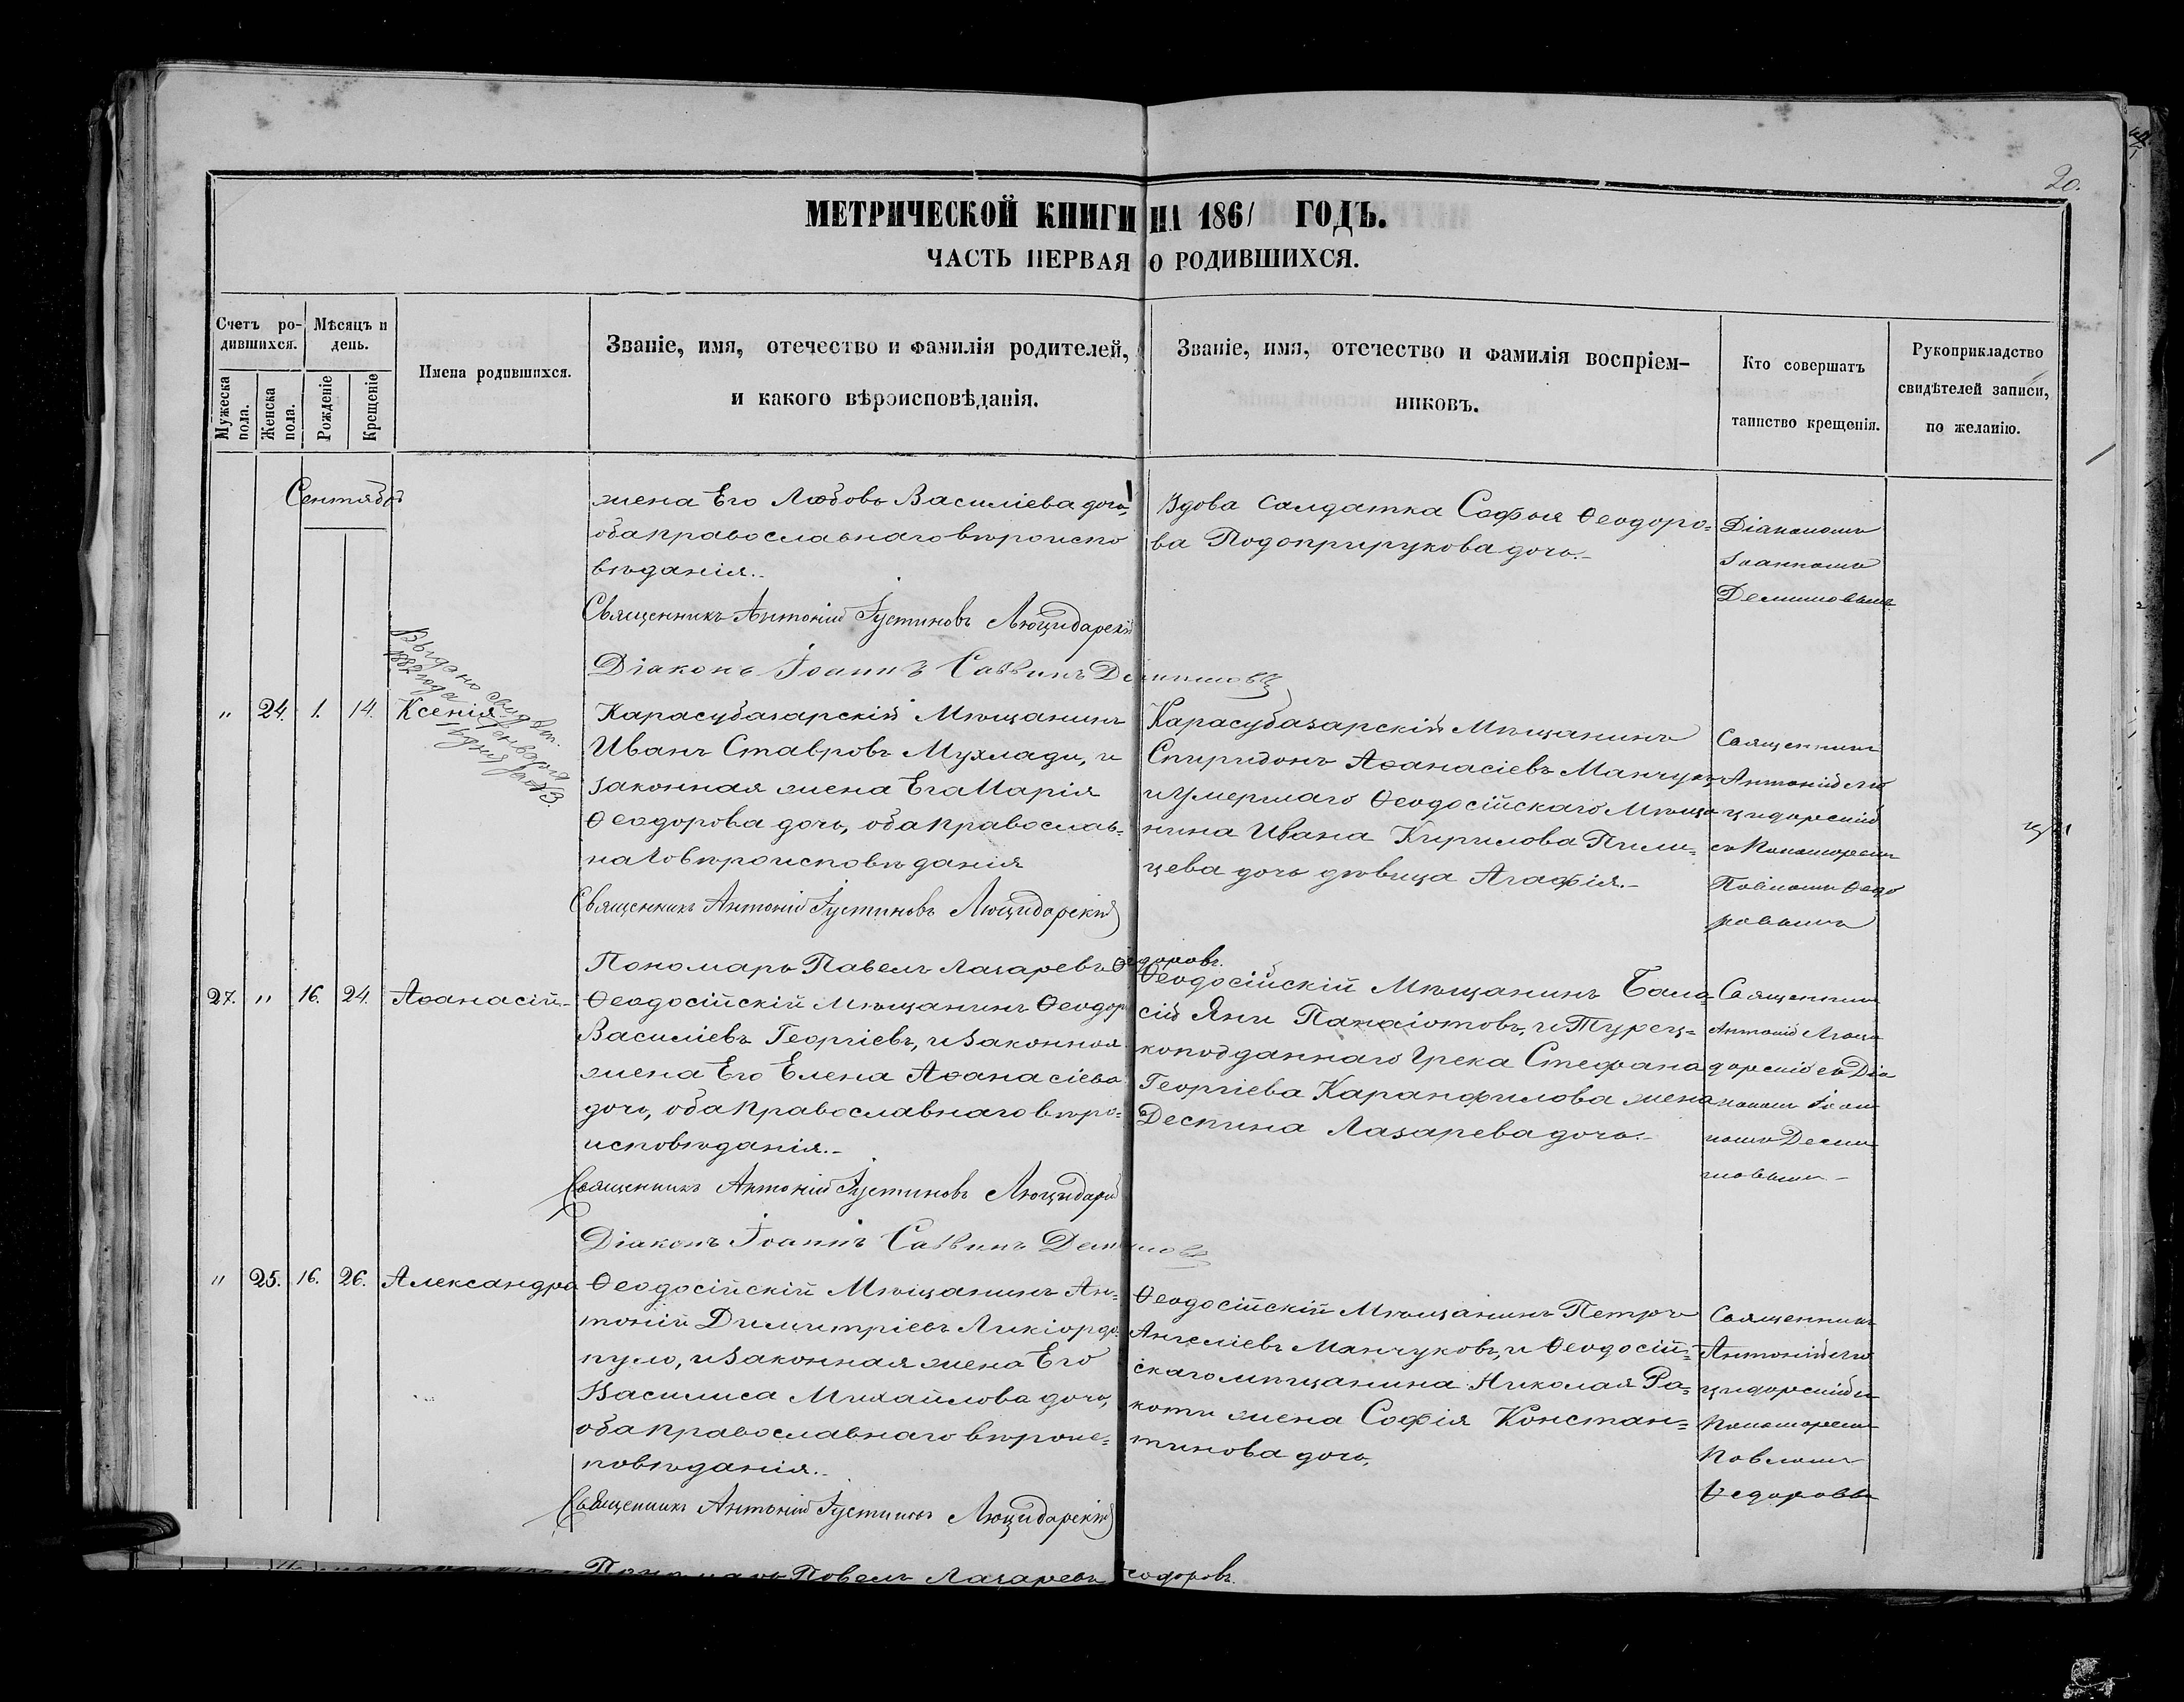 20.
МЕТРИЧЕСКОЙ КНИГИ НА 1861 ГОДЪ.
ЧАСТЬ ПЕРВАЯ О РОДИВШИХСЯ.
Счетъ ро-
дившихся.
Мужеска
пола.
Женска
пола.
Мѣсяцъ и
день.
Рожденіе
Крещеніе
Имена родившихся.
Званіе, имя, отечество и фамилія родителей,
и какого вѣроисповѣданія.
Званіе, имя, отечество и фамилія воспріем-
никовъ.
Кто совершатъ
таинство крещенія.
Рукоприкладство
свидѣтелей записи,
по желанію.
Сентябрь
жена Его Любовь Василіева дочь,
оба православнаго вѣроиспо
вѣданія.
Священникъ Антоній Іустиновъ Люцидарскій
Діаконъ Іоаннъ Саввинъ Демишовъ
Вдова Салдатка Софья Ѳеодоро=
ва Подоприрукова дочь.
Діакономъ
Іоанномъ
Демишовымъ
„ 24. 1. 14. Ксенія
Выдано свидѣт.
1882 года Генваря
Карасубазарскій Мѣщанинъ
Иванъ Ставровъ Мухлади, и
законная жена Его Марія
Ѳеодорова дочь, оба православ=
наго вѣроисповѣданія
Священникъ Антоній Іустиновъ Люцидарскій
Пономарь Павелъ Лазаревъ Ѳедоровъ.
Карасубазарскій Мѣщанинъ
Спиридонъ Аѳанасіевъ Манчу
и умершаго Ѳеодосійскаго Мѣща
нина Ивана Кирилова Пили=
цева дочь дѣвица Агафія.
Священникъ
Антоній Лю
цидарскій
съ Пономаремъ
Павломъ Ѳедо
ровымъ
27. „ 16. 24. Аѳанасій
Ѳеодосійскій Мѣщанинъ Ѳеодоръ
Василіевъ Георгіевъ, и законная
жена Его Елена Аѳанасіева
дочь, оба Православнаго вѣро=
исповѣданія.
Священникъ Антоній Іустиновъ Люцидарскій
Діаконъ Іоаннъ Саввинъ Демишовъ
Ѳеодосійскій Мѣщанинъ
Яни Панаіотовъ, и Турец=
коподданнаго Грека Стефана
Георгіева Каранфилова жена
Деспина Лазарева дочь.
Священникъ
Антоній Люци
дарскій съ Діа
кономъ Іоан
номъ Деми
шовымъ
„ 25. 16. 26. Александра
Ѳеодосійскій Мѣщанинъ Ан=
тоній Димитріевъ Ликіардо
пуло, и законная жена Его
Василиса Михайлова дочь,
оба православнаго вѣроис=
повѣданія.
Священникъ Антоній Іустиновъ Люцидарскій
Пономарь Павелъ Лазаревъ Ѳеодоровъ.
Ѳеодосійскій Мѣщанинъ Петръ
Ангеліевъ Манчуковъ, и Ѳеодосій=
скаго мѣщанина Николая Ра=
коти жена Софія Констан=
тинова дочь,
Священникъ
Антоній Лю
цидарскій съ
Пономаремъ
Павломъ
Ѳедоровымъ